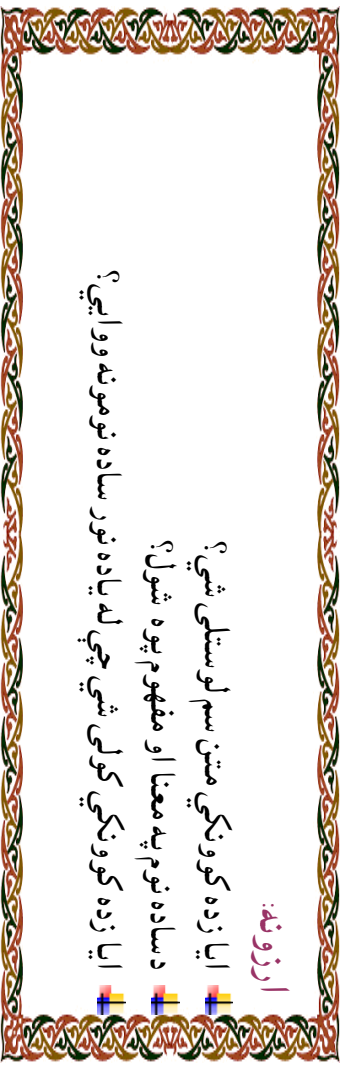 ارزونه:
ایا زده کوونکي متن سم لوستلی شي؟
د ساده نوم په معنا او مفهوم پوه شول؟
ایا زده کوونکي کولی شي چې له یاده نور ساده نومونه ووایي؟